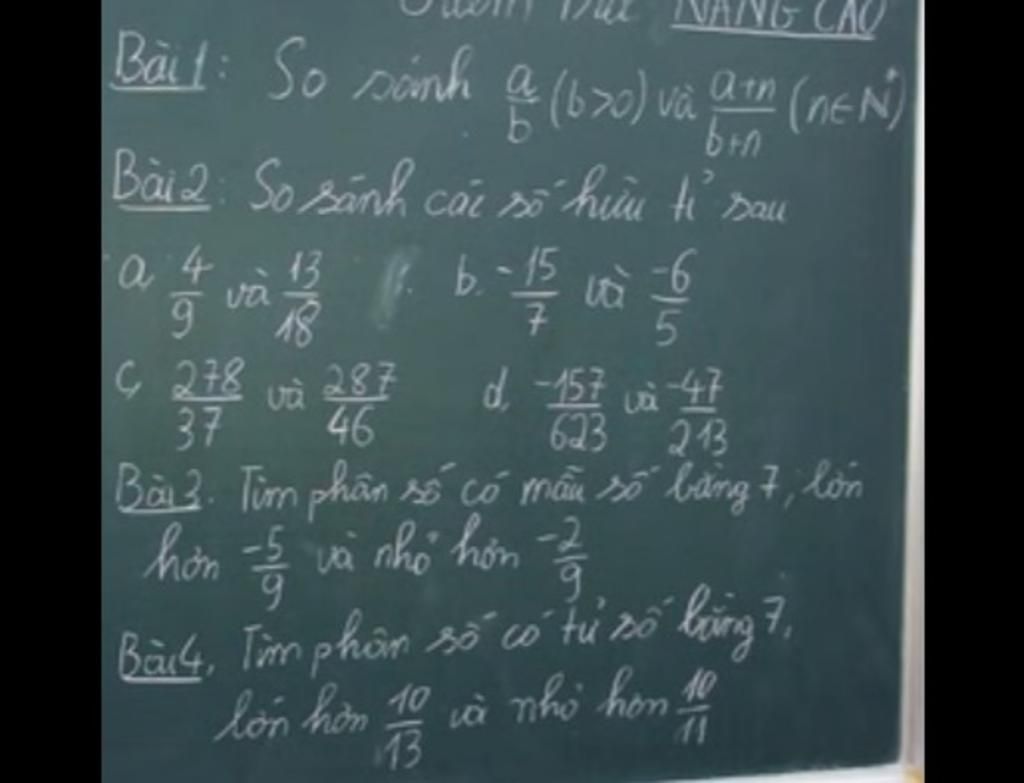 NÂNG CAO
Bài 1: So sánh a/b (b>0) và a+n/b+n (n∈N*)
Bài 2: So sánh các số hữu tỉ sau
a, 4/9 và 13/18 b. -15/7 và -6/5
c, 278/37 và 287/46 d, -157/623 và -47/213
Bài 3. Tìm phân số có mẫu số bằng 7, lớn
hơn -5/9 và nhỏ hơn -2/9
Bài 4, Tìm phân số có tử số bằng 7,
lớn hơn 10/13 và nhỏ hơn 10/11